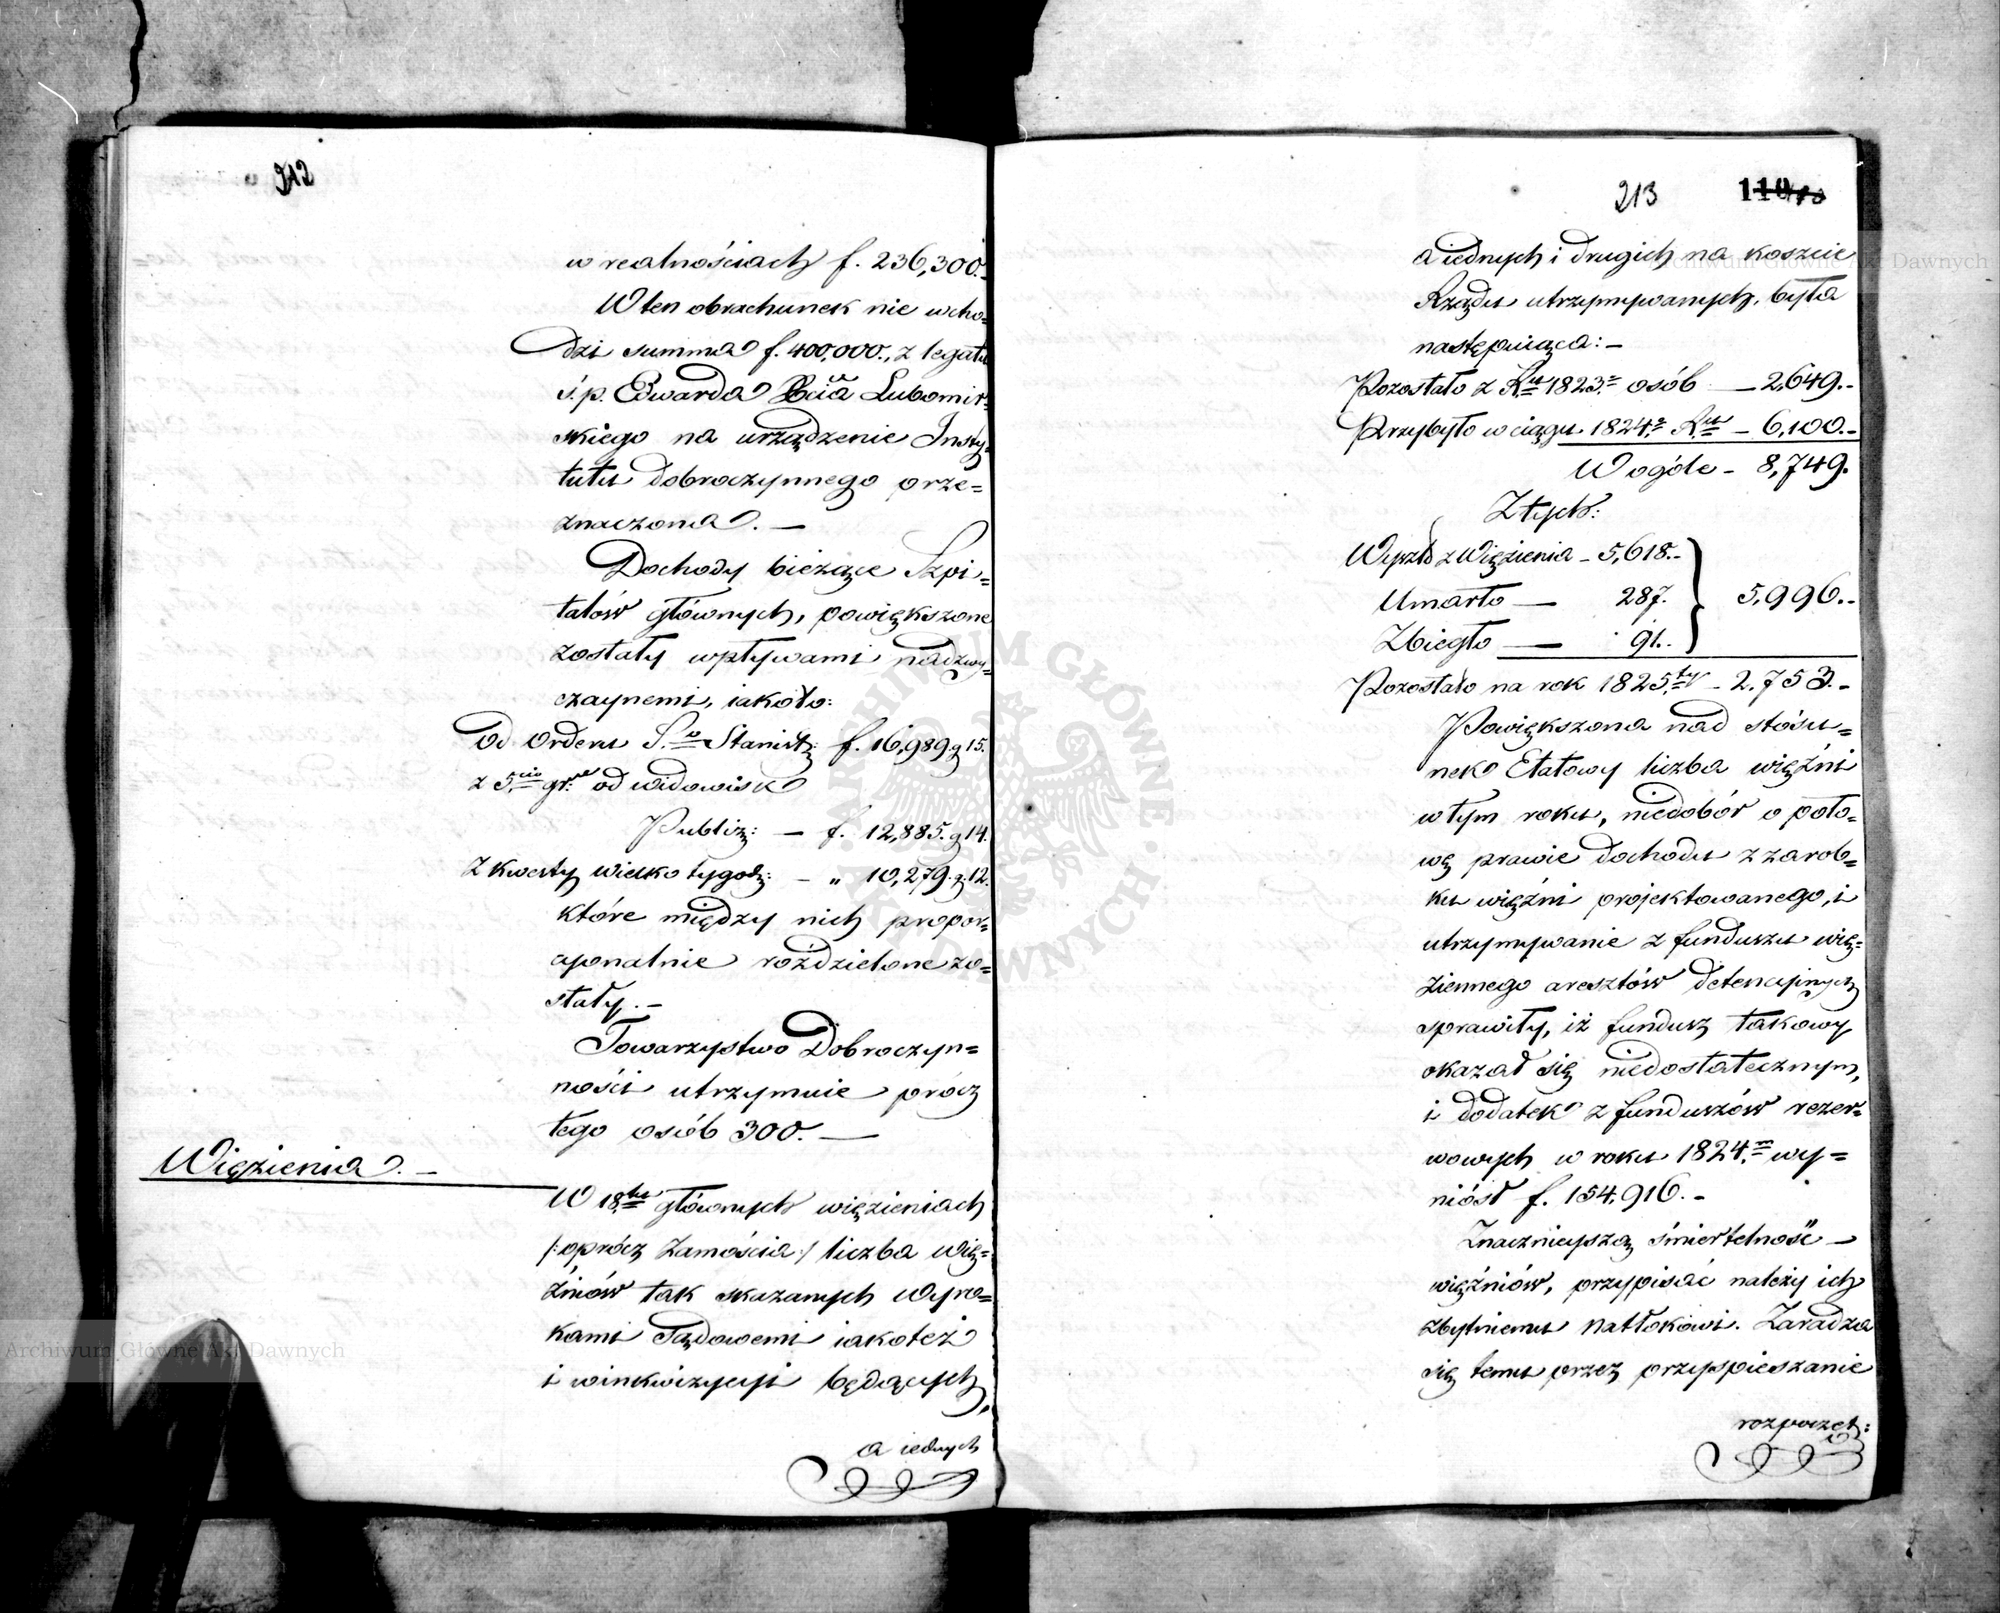 212
w realnościach f. 236,300.
W ten obrachunek nie wcho=
dzi summa f. 400,000., z legatu
ś.p. Edwarda Xcia Lubomir=
skiego na urządzenie Insty=
tutu dobroczynnego prze=
znaczona. —
Dochody bieżące Szpi=
talów głównych, powiększone
zostały wpływami nadzwy=
czaynemi, iakoto:
Od Orderu S.go Stanisł: f. 16,989. g 15.
z 5.ciu gr. od widowisk
Publiz: — f. 12,885. g 14.
Z kwesty wielkotygodz: — „ 10,279. g 12.
które między nich propor=
cyonalnie rozdzielone zo=
stały. —
Towarzystwo Dobroczyn=
ności utrzymuie prócz
tego osób 300. —
Więzienia. —
W 18.tu głównych więzieniach
/: oprócz Zamościa :/ liczba Wię=
źniów tak skazanych Wyro=
kami Sądowemi iakoteż
i w inkwizycyi będących,
a iednych
213 110
a iednych i drugich na koszcie
Rządu utrzymywanych, była
następuiąca: —
Pozostało z Ru 1823. osób — 2,649. -
Przybyło w ciągu 1824. Ru — 6,100. -
W ogóle - 8,749.
Z tych:
Wyszło z Więzienia - 5,618. -
Umarło — 287. 5,996. -
Zbiegło — 91. -
Pozostało na rok 1825.ty - 2,753. -
Powiększona nad stósu=
nek Etatowy liczba więźni
w tym roku, niedobór o poło=
wę prawie dochodu z zarob=
ku więźni projektowanego, i
utrzymywanie z funduszu wię=
ziennego aresztów detencyjnych
sprawiły, iż fundusz takowy
okazał się niedostatecznym,
i dodatek z funduszów rezer=
wowych w roku 1824.m wy=
niósł f. 154,916. -
Znacznieyszą śmiertelność —
więźniów, przypisać należy ich
zbytniemu natłokowi. Zaradza
się temu przez przyspieszanie
rozpoczęt:
ARCHIWUM GŁÓWNE AKT DAWNYCH
Archiwum Główne Akt Dawnych
Archiwum Główne Akt Dawnych